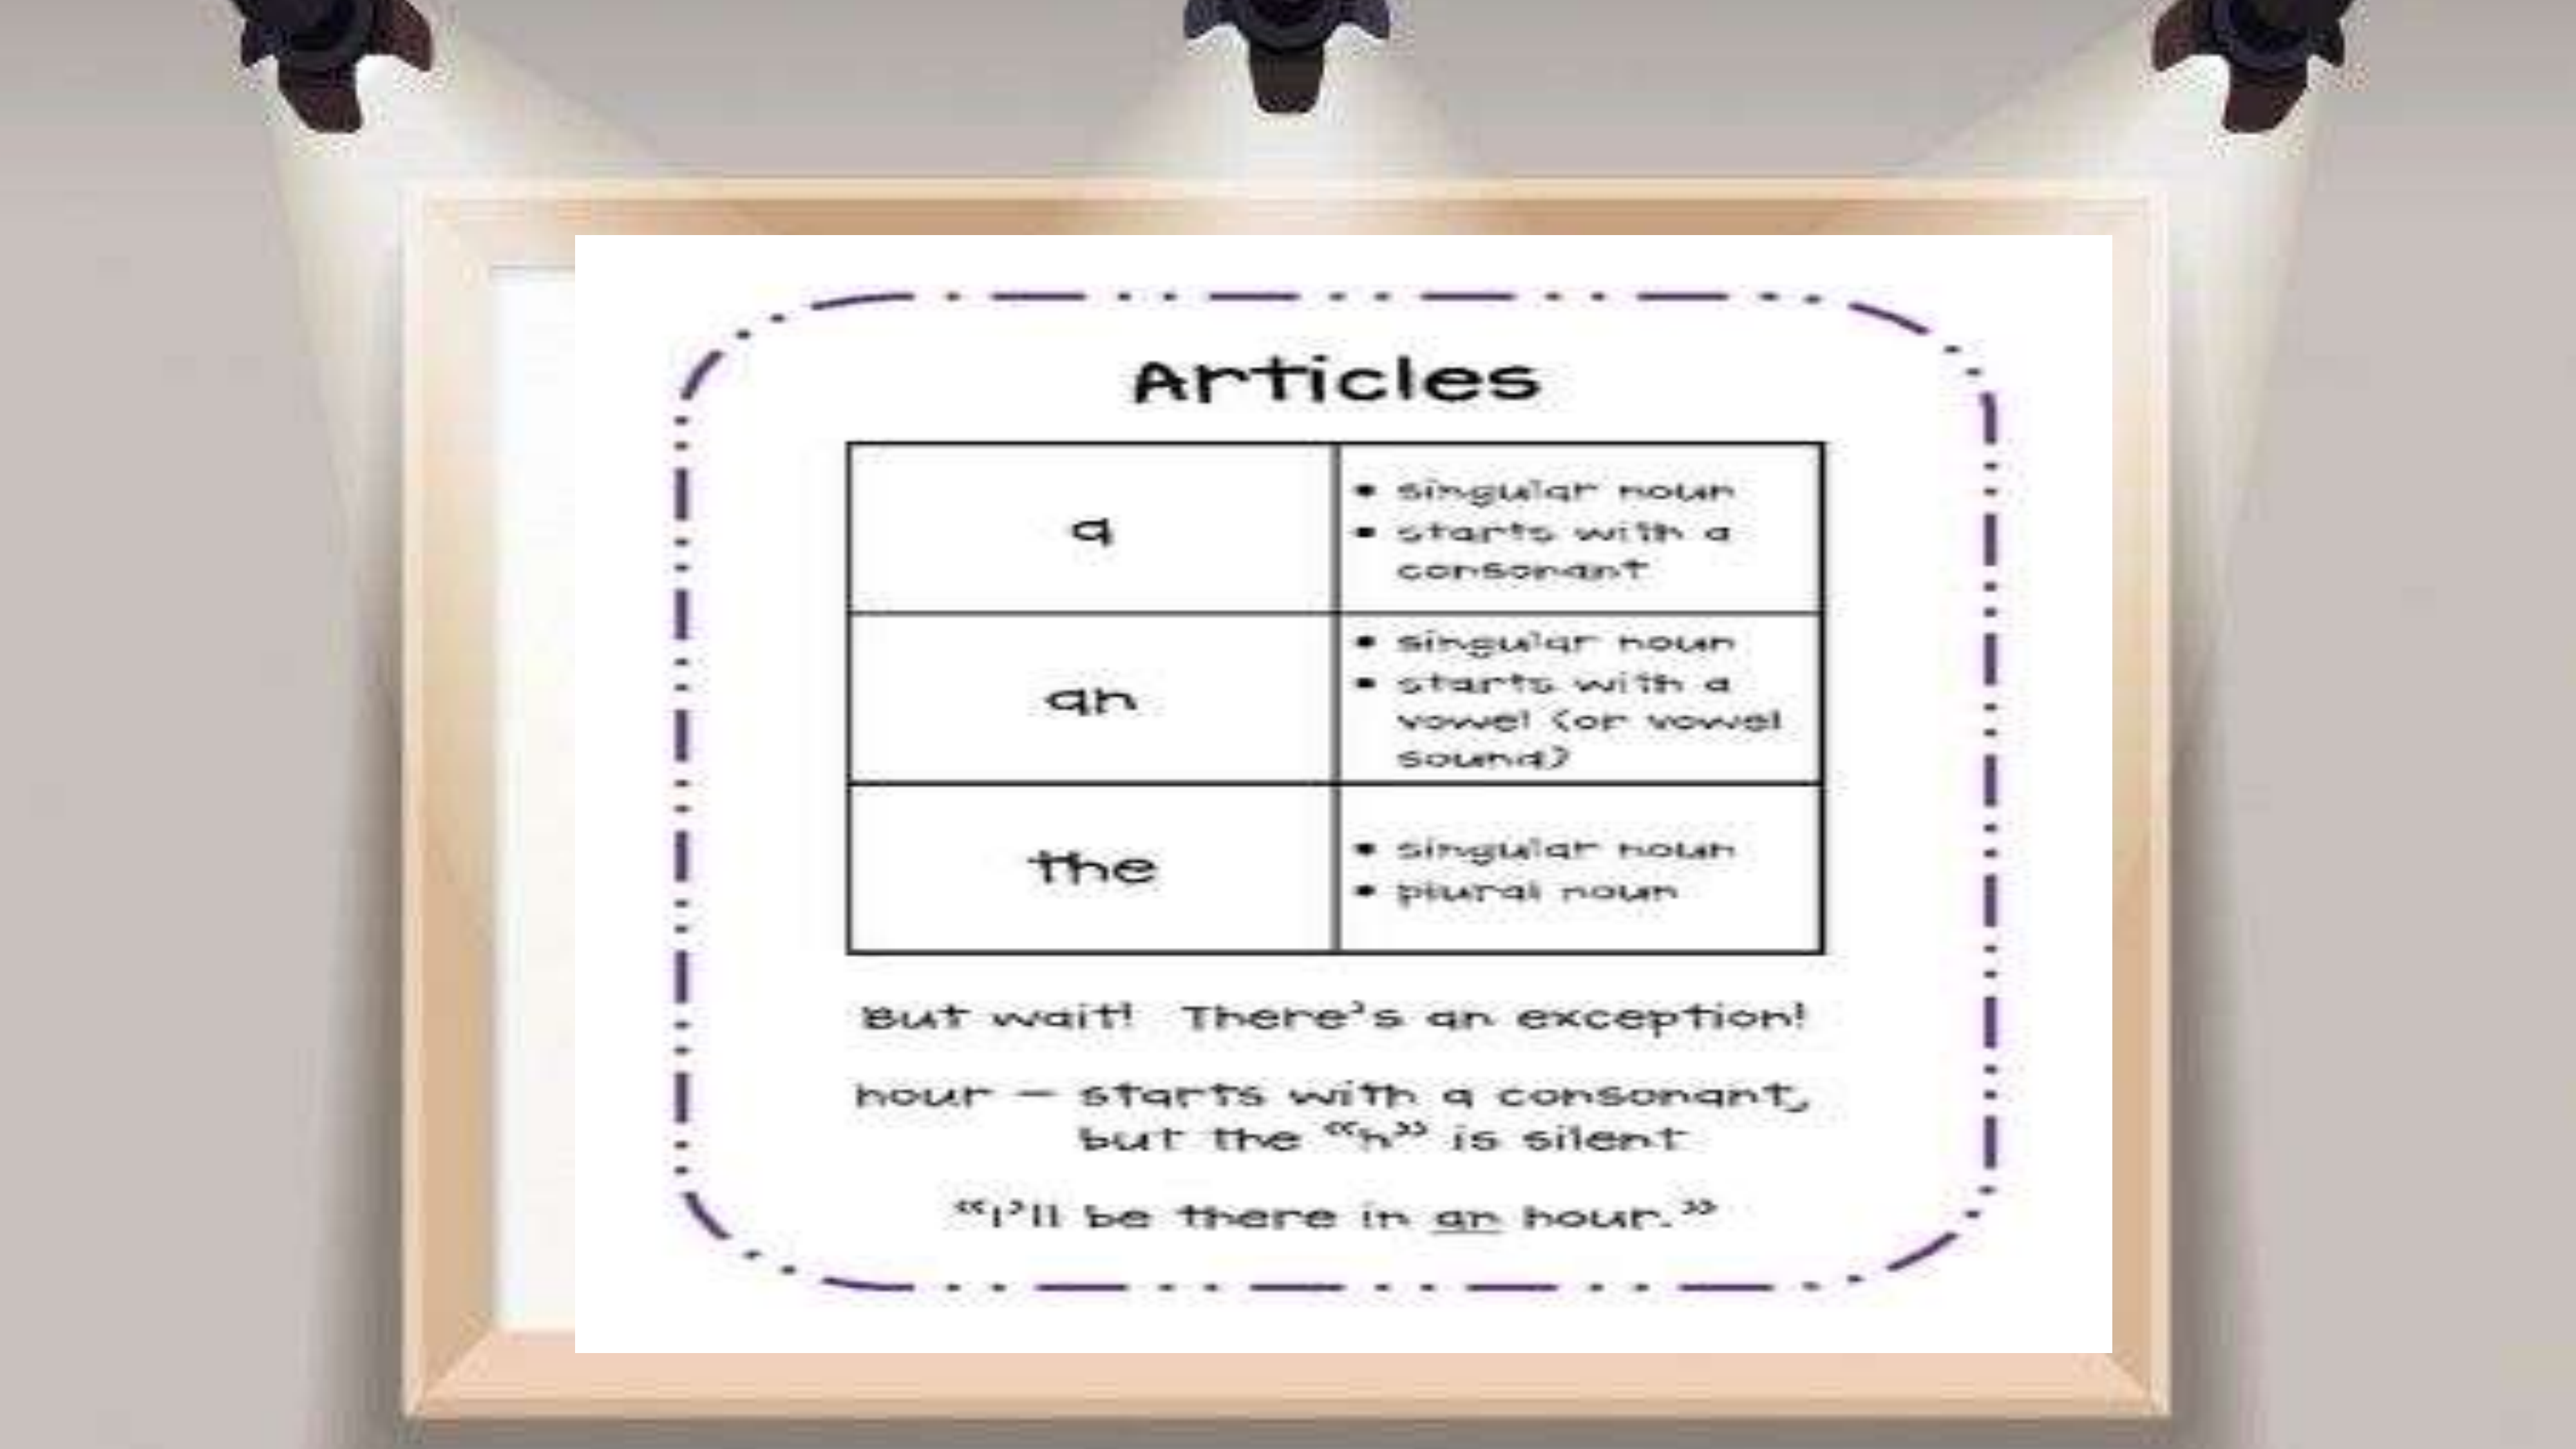 Articles
a
• singular noun
• starts with a
consonant
an
• singular noun
• starts with a
vowel (or vowel
sound)
the
• singular noun
• plural noun
But wait! There's an exception!
hour – starts with a consonant,
but the “h” is silent
“I'll be there in an hour.”